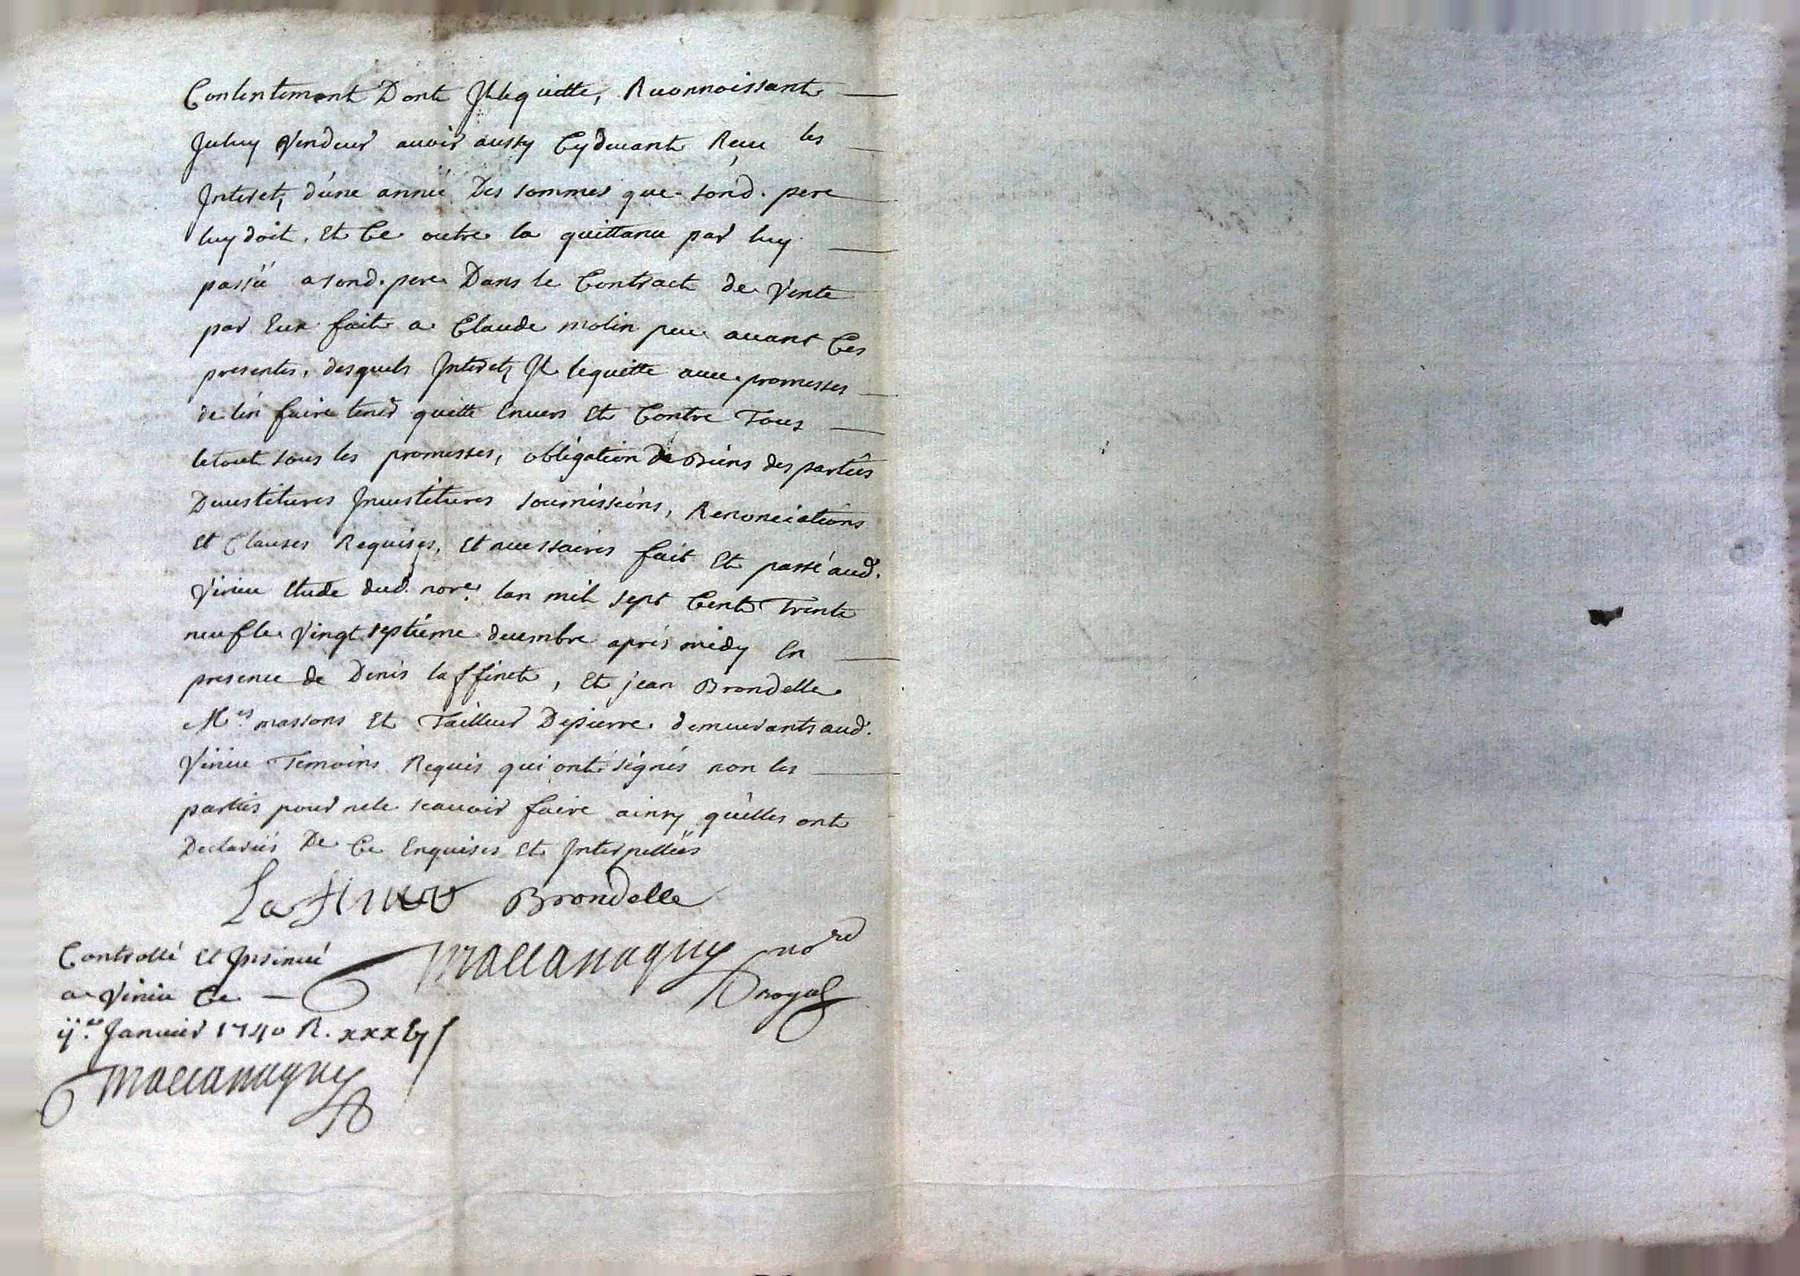 Contentement Dont Il le quitte, Reconnoissant
Iceluy Vendeur avoir aussy Cydevant Receu les
Interets d'une année Des sommes que sond. pere
luy doit, Et Ce outre la quittance par luy
passée a sond. pere Dans le Contract de Vente
par Eux fait a Claude molin peu avant Ces
presentes, desquels Interets Il le quitte avec promesses
de l'en faire tenir quitte Envers Et Contre Tous
le tout sous les promesses, obligation de Biens des parties
Devestitures Investitures soumissions, Renonciations
Et Clauses Requises, Et necessaires fait Et passé aud.
Virieu Etude dud. nore. lan mil sept Cent Trente
neuf le Vingt septieme decembre après midy En
presence de Denis laffinet, Et jean Brondelle
Mes. massons Et Tailleur De pierre demeurants aud.
Virieu Temoins Requis qui ont signés non les
parties pour ne le scavoir faire ainsy qu'elles ont
Declarées De Ce Enquises Et Interpellées
Brondelle
nore
royal
Controllé Et Insinué
a Virieu Ce
ije. Janvier 1740 R.